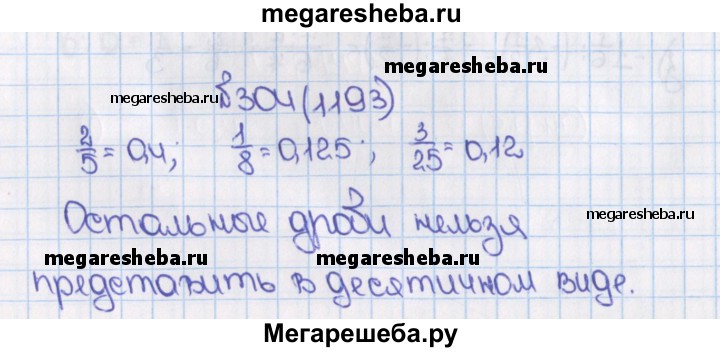 megaresheba.ru
megaresheba.ru
megaresheba.ru №304(1193)
2/5 = 0,4; 1/8 = 0,125; 3/25 = 0,12
Остальные дроби нельзя
megaresheba.ru
megaresheba.ru megaresheba.ru
представить в десятичном виде.
Мегарешеба.ру